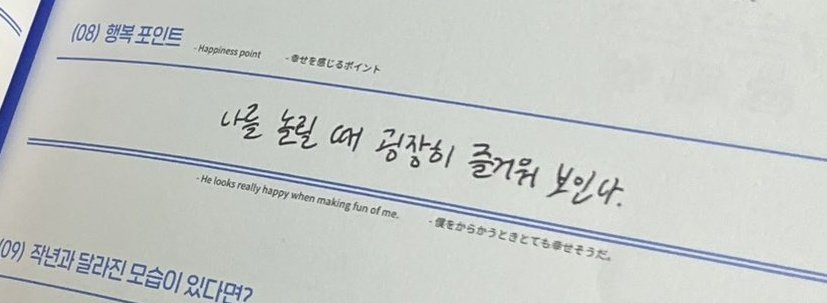 (08) 행복 포인트 - Happiness point - 幸せを感じるポイント
나를 놀릴 때 굉장히 즐거워 보인다.
- He looks really happy when making fun of me. - 僕をからかうときとても幸せそうだ。
09) 작년과 달라진 모습이 있다면?